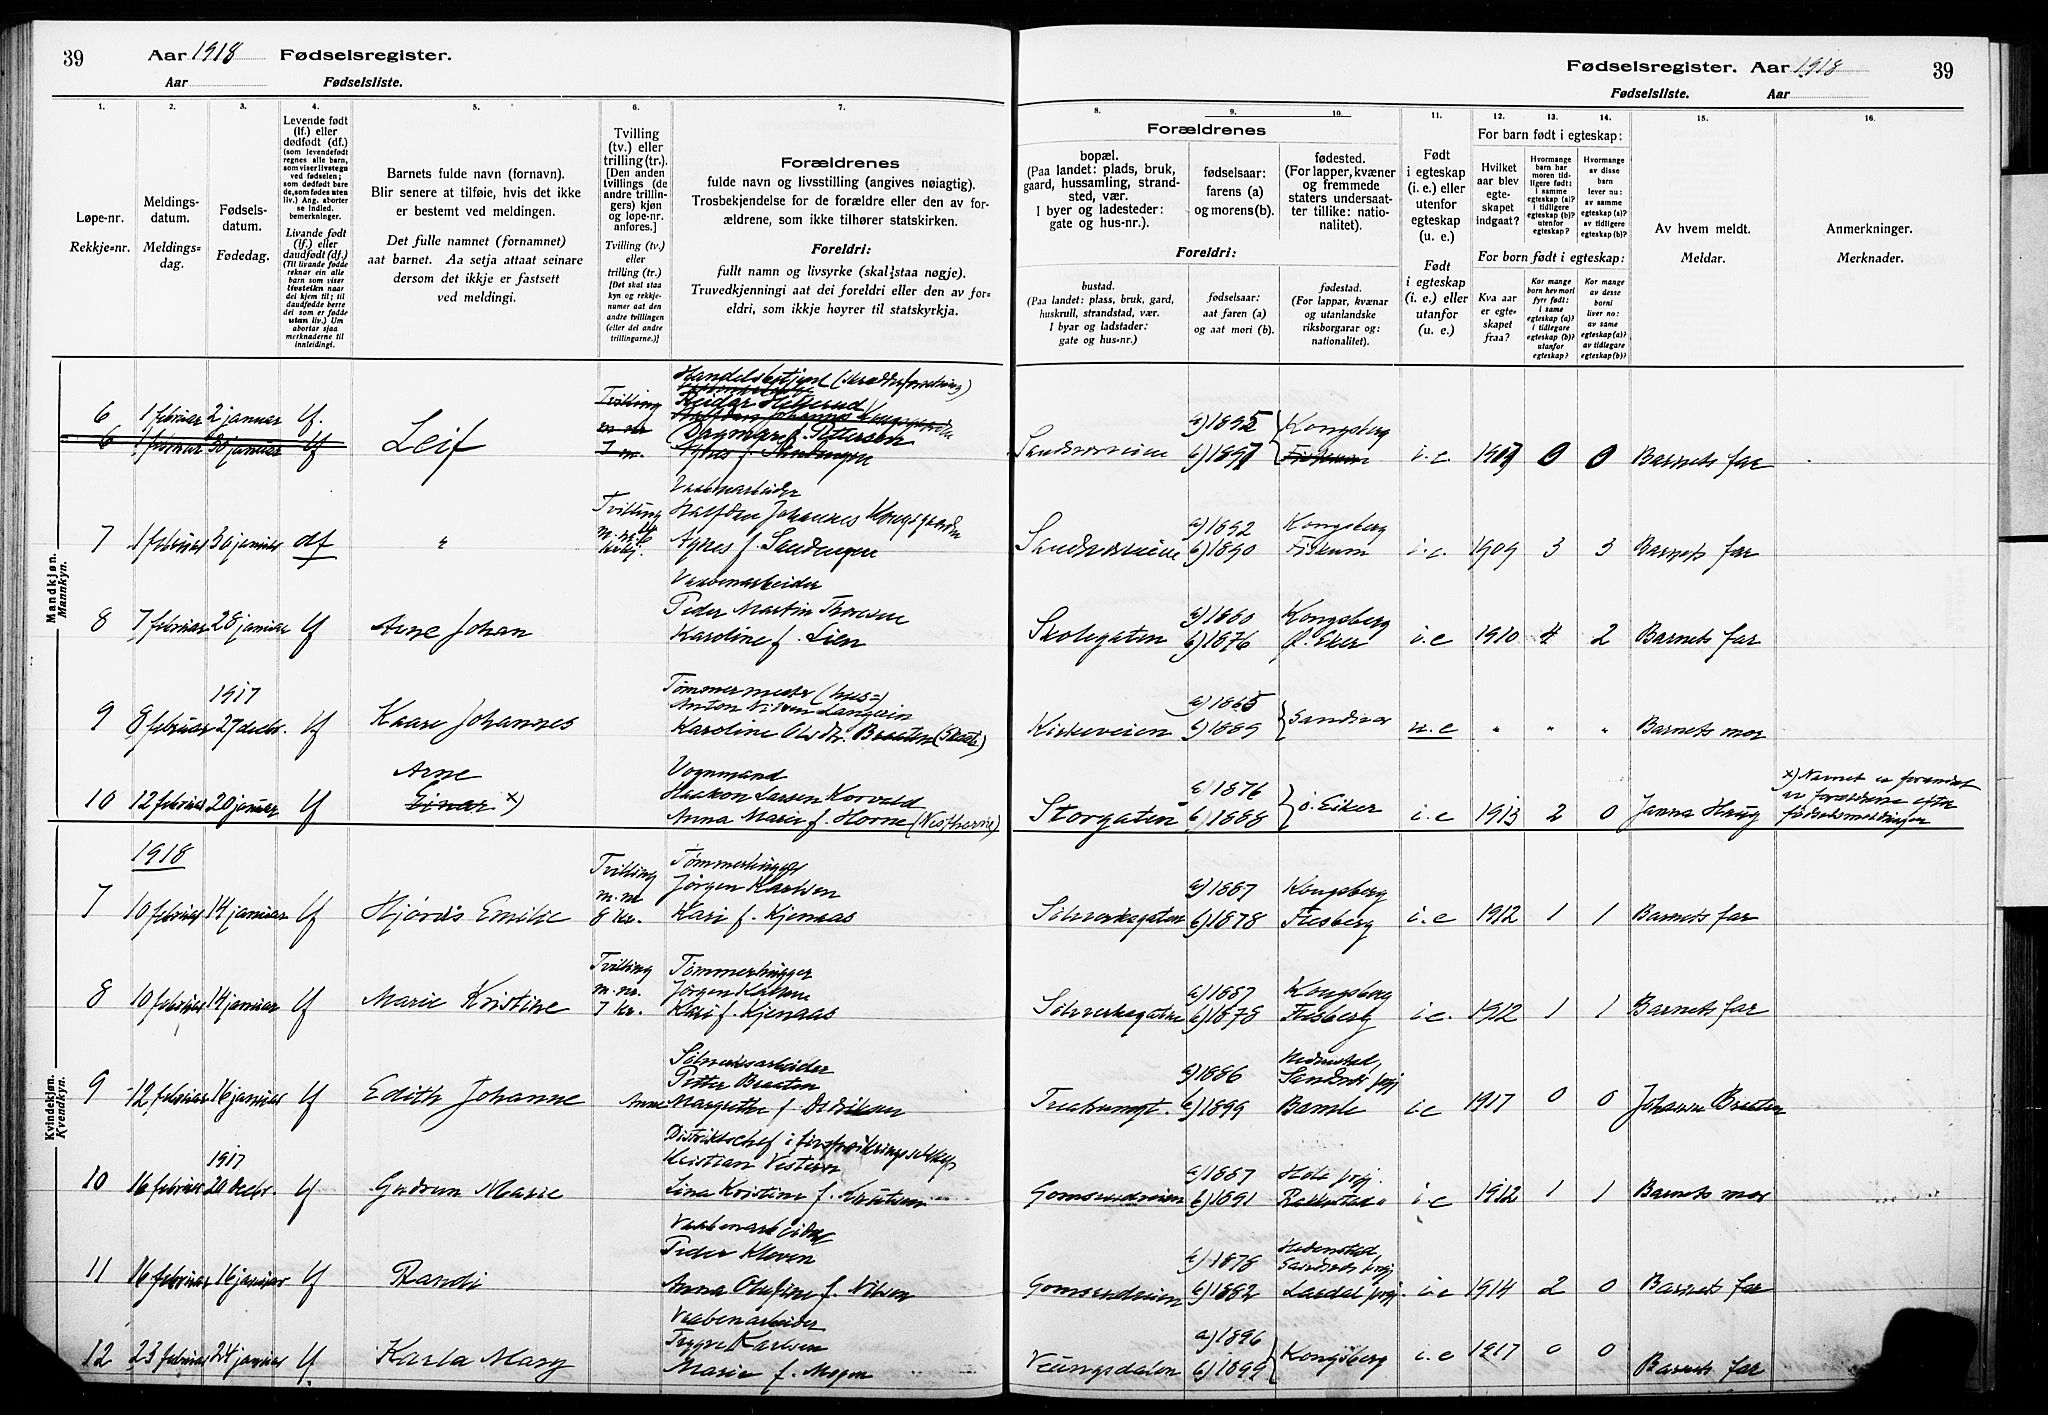 39
Aar 1918 Fødselsregister.
Aar Fødselsliste.
1. 2. 3. 4. 5. 6. 7.
Løpe-nr.
Rekkje-nr.
Meldings-
datum.
Meldings=
dag.
Fødsels-
datum.
Fødedag.
Levende født
(lf.) eller
dødfødt (df.)
(som levendefødt
regnes alle barn,
som viser livstegn
ved fødselen;
som dødfødt bare
de, som fødes uten
liv.) Ang. aborter
se indled.
bemerkninger.
Livande født
(lf.) eller
daudfødt (df.)
(Til livande fødde
reknar ein alle
barn som viser
livsteikn naar
dei kjem til; til
daudfødde berre
dei som er fødde
utan liv.) Um
abortar sjaa
merknaderne til
innleidingi.
Barnets fulde navn (fornavn).
Blir senere at tilføie, hvis det ikke
er bestemt ved meldingen.
Det fulle namnet (fornamnet)
aat barnet. Aa setja attaat seinare
dersom det ikkje er fastsett
ved meldingi.
Tvilling
(tv.) eller
trilling (tr.).
[Den anden
tvillings (de
andre trillin-
gers) kjøn
og løpe-nr.
anføres.]
Tvilling (tv.)
eller
trilling (tr.)
[Det skal staa
kyn og rekkje-
numer aat den
andre tvillingen
(eller dei andre
trillingarne.)]
Forældrenes
fulde navn og livsstilling (angives nøiagtig).
Trosbekjendelse for de forældre eller den av for-
ældrene, som ikke tilhører statskirken.
Foreldri:
fullt namn og livsyrke (skal staa nøgje).
Truvedkjenningi aat dei foreldri eller den av for=
eldri, som ikkje høyrer til statskyrkja.
Mandkjøn.
Mannkyn.
6 1 februar 2 januar lf. Leif Tvilling Handelsbetjent
Reidar
Dagmar f. Pettersen
6 1 februar 30 januar lf
7 1 februar 30 januar df " Tvilling Vaabenarbeider
Halfdan Johannes Kongsgaarden
Agnes f. Sandungen
8 7 februar 28 januar lf Arne Johan Vaabenarbeider
Peder Martin Thorsen
Karoline f. Lien
9 8 februar 1917 27 decbr. lf Kaare Johannes Tømmermester (hus=)
Anton Nilsen Langelin
Karoline Olsdtr. Braaten
10 12 februar 20 januar lf Arne Einar x) Vognmand
Haakon Larsen Korvald
Anna Marie f. Horne
Kvindekjøn.
Kvendkyn.
1918
7 10 februar 14 januar lf Hjørdis Emilie Tvilling m. nr 8 kv. Tømmerhugger
Jørgen Karlsen
Kari f. Kjennaas
8 10 februar 14 januar lf Marie Kristine Tvilling m. nr. 7 kv. Tømmerhugger
Jørgen Karlsen
Kari f. Kjennaas
9 12 februar 16 januar lf Edith Johanne Sølvverksarbeider
Petter Braaten
Anne Margrethe f. Didriksen
10 16 februar 1917 20 decbr. lf Gudrun Marie Distriktschef i
Kristian Vestern
Lina Kristine f. Knutsen
11 16 februar 16 januar lf Randi Vaabenarbeider
Peder Kleven
Anna Olufine f. Nilsen
12 23 februar 24 januar lf Karla Mary Vaabenarbeider
Trygve Karlsen
Marie f. Mogen
Fødselsregister. Aar 1918
39
Fødselsliste. Aar
8. 9. 10. 11. 12. 13. 14. 15. 16.
Forældrenes
bopæl.
(Paa landet: plads, bruk,
gaard, hussamling, strand-
sted, vær.
I byer og ladesteder:
gate og hus-nr.).
fødselsaar:
farens (a)
og morens (b).
fødested.
(For lapper, kvæner
og fremmede
staters undersaat-
ter tillike: natio-
nalitet).
Foreldri:
bustad.
(Paa landet: plass, bruk, gard,
huskrull, strandstad, vær.
I byar og ladstader:
gate og hus=nr.)
fødselsaar:
aat faren (a)
og aat mori (b).
fødestad.
(For lappar, kvænar
og utanlandske
riksborgarar og:
nationalitet).
Født
i egteskap
(i. e.) eller
utenfor
egteskap
(u. e.)
Født
i egteskap
(i. e.) eller
utanfor
(u. e.)
For barn født i egteskap:
Hvilket
aar blev
egte-
skapet
indgaat?
Hvormange
barn har
moren tid-
ligere født:
i samme
egteskap (a)?
i tidligere
egteskap (b)?
utenfor
egteskap?
Hvormange
av disse
barn
lever nu:
av samme
egteskap (a)?
av tidligere
egteskap (b)?
For born født i egteskap:
Kva aar
er egte-
skapet
fraa?
Kor mange
born hev mori
fyrr født:
i same
egteskap (a)?
i tidlegare
egteskap (b)?
utanfor
egteskap?
Kor mange
av desse
borni
liver no:
av same
egteskap (a)?
av tidlegare
egteskap (b)?
Av hvem meldt.
Meldar.
Anmerkninger.
Merknader.
a) 1895 b) 1897 Kongsberg i. e. 1917 0 0 Barnets far
a) 1892 Kongsberg
b) 1890 Fiskum i. e. 1909 3 3 Barnets far
a) 1880 Kongsberg
Skolegaten b) 1876 Ø. Eker i. e 1910 4 2 Barnets far
a) 1865
Kirkeveien b) 1889 Sandsvær u. e " " " Barnets mor
a) 1876
Storgaten b) 1888 ø. Eiker i. e 1913 2 0 Janna Haug
x) Navnet er forandret
av forældrene efter
fødselsmeldingen
a) 1887 Kongsberg
Sølvverksgaten b) 1878 Flesberg i. e 1912 1 1 Barnets far
a) 1887 Kongsberg
Sølvverksgaten b) 1878 Flesberg i. e. 1912 1 1 Barnets far
a) 1886 Hedenstad, Sandsvær prgj
b) 1899 Bamle i. e 1917 0 0 Johanne Braaten
a) 1887 Hole prgj.
Gomsrudveien b) 1891 Rakkestad " i. e 1912 1 1 Barnets mor
a) 1878 Hedenstad, Sandsvær prgj
Gomsrudveien b) 1882 Lardal prgj. i. e 1914 2 0 Barnets far
a) 1896
b) 1899 Kongsberg i. e 1917 0 0 Barnets far